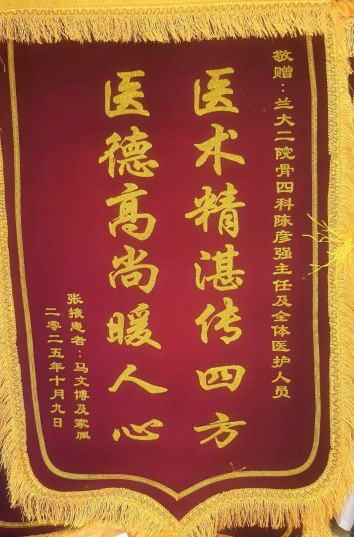 敬赠：兰大二院骨四科陈彦强主任及全体医护人员
医术精湛传四方
医德高尚暖人心
张掖患者：马文博及家属
二零二五年十月九日